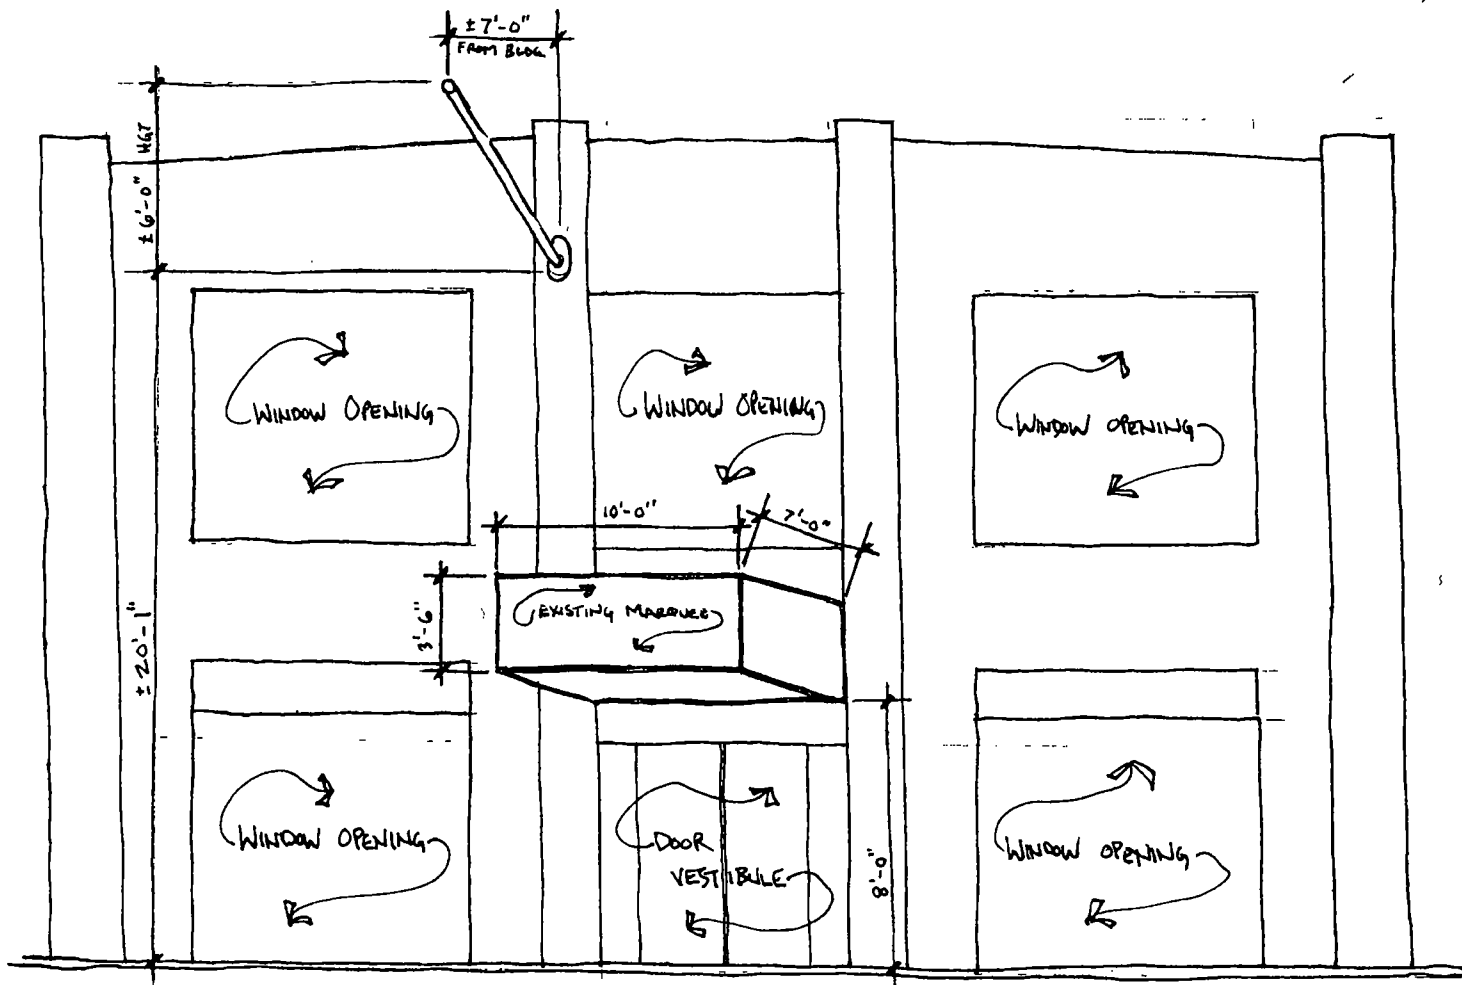 ±7'-0"
FROM BLDG.
±6'-0" HGT
WINDOW OPENING
WINDOW OPENING
WINDOW OPENING
10'-0"
7'-0"
3'-6"
EXISTING MARQUEE
±20'-1"
WINDOW OPENING
DOOR
VESTIBULE
8'-0"
WINDOW OPENING